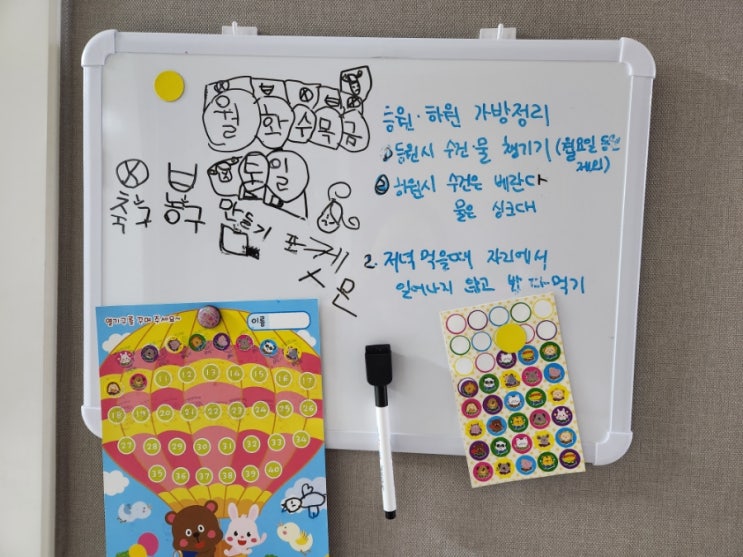 월 화 수 목 금
토 일
축구 농구 만들기 포켓
몬
등원·하원 가방정리
① 등원시 수건·물 챙기기 (월요일 등원
제외)
② 하원시 수건은 베란다
물은 싱크대
2. 저녁 먹을때 자리에서
일어나지 않고 밥 먹기
열기구를 꾸며주세요~
이름
11 12 13 14 15 16 17
18 19 20 21 22 23 24 25 26
27 28 29 30 31 32 33 34
35 36 37 38 39 40